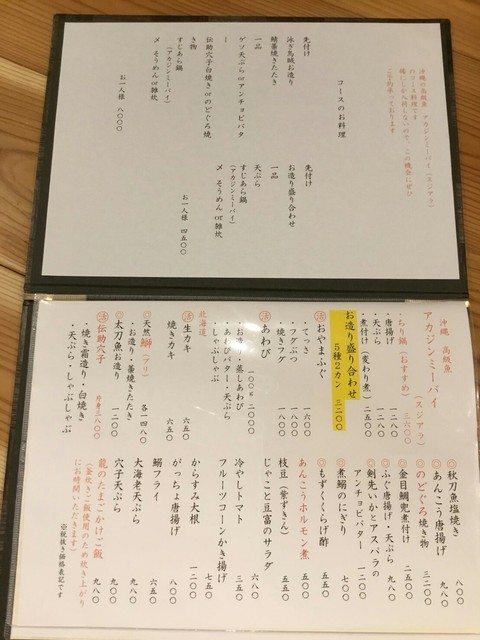 沖縄の高級魚 アカジンミーバイ(スジアラ)
のコース料理です
ご予約承っております
コースのお料理
先付け
泳ぎ烏賊お造り
鯖藁焼きたたき
一品
ゲソ天ぷらorアンチョビバタ
ー
伝助穴子白焼きorのどぐろ焼
き物
すじあら鍋
(アカジンミーバイ)
〆 そうめんor雑炊
お一人様 八〇〇〇
先付け
お造り盛り合わせ
一品
天ぷら
すじあら鍋
(アカジンミーバイ)
〆 そうめんor雑炊
お一人様 四五〇〇
沖縄 高級魚
アカジンミーバイ
(スジアラ)
・ちり鍋(おすすめ) 三六〇〇
・唐揚げ 一二八〇
・天ぷら 一二八〇
・煮付け(変わり煮) 二五〇〇
お造り盛り合わせ
5種2カン 三二〇〇
活おやまふぐ
・てっさ 一六〇〇
・フグぶつ 一八〇〇
・焼きフグ 一八〇〇
活あわび
一〇〇g 二〇〇〇
・お造り・蒸しあわび
・あわびバター・天ぷら
・しゃぶしゃぶ
北海道
活生カキ 六五〇
焼きカキ 六五〇
◎天然鰤(ブリ)
・お造り・藁焼きたたき 各一四八〇
◎太刀魚お造り 一二〇〇
活伝助穴子 片身三八〇〇
・焼き霜造り・白焼き
・天ぷら・しゃぶしゃぶ
◎秋刀魚塩焼き 八〇〇
◎あんこう唐揚げ 九八〇
◎のどぐろ焼き物 三二〇〇
◎金目鯛兜煮付け 二五〇〇
◎ふぐ唐揚げ・天ぷら 九八〇
◎剣先いかとアスパラの
アンチョビバター 一二〇〇
◎煮鰯のにぎり 七〇〇
◎もずくくらげ酢 五五〇
あんこうホルモン煮 五五〇
枝豆(紫ずきん) 五五〇
じゃこと豆富のサラダ 六八〇
冷やしトマト 三五〇
フルーツコーンかき揚げ 七五〇
からすみ大根 一二〇〇
がっちょ唐揚げ 八〇〇
鰯フライ 六五〇
大海老天ぷら 九〇〇
穴子天ぷら 九八〇
龍のたまごかけご飯 九八〇
(釜炊きご飯使用のため炊き上がり
にお時間いただきます)
※税抜き価格表記です